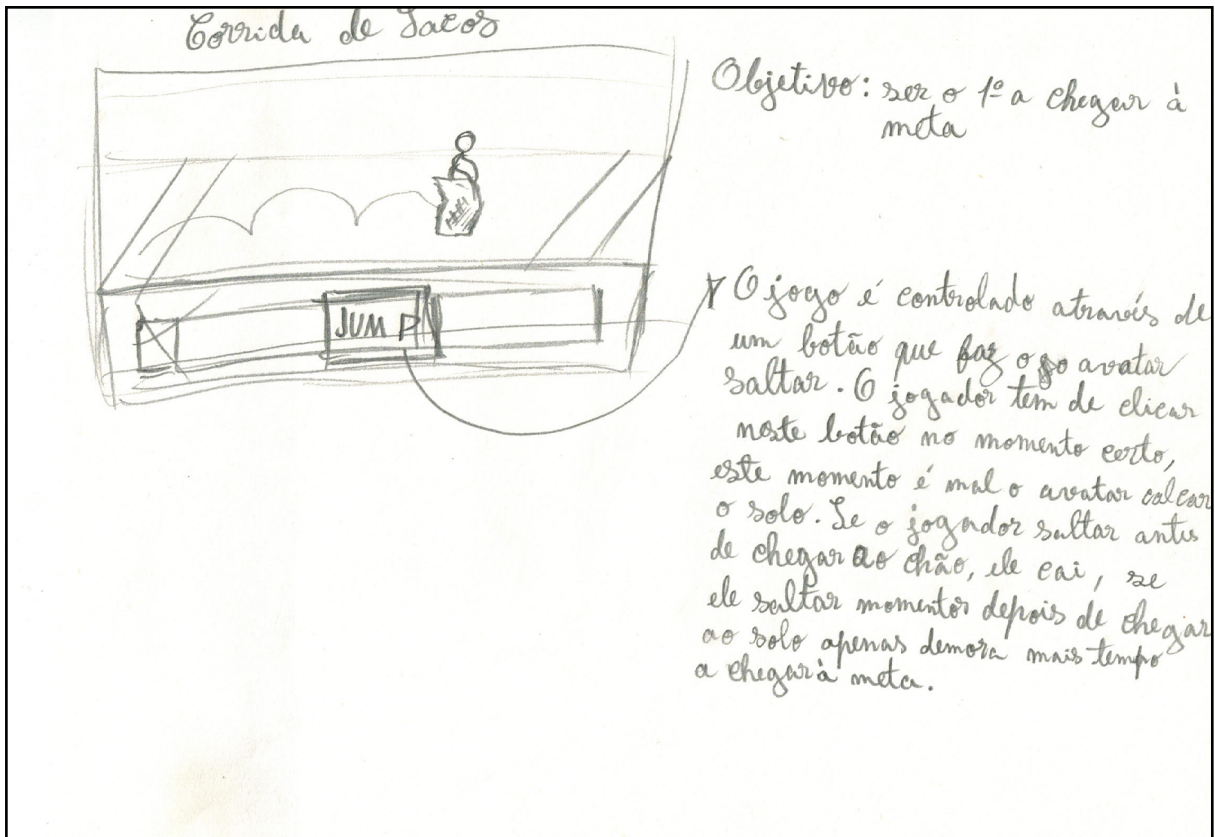 Corrida de Sacos
Objetivo: ser o 1º a chegar à
meta
O jogo é controlado através de
um botão que faz o avatar
saltar. O jogador tem de clicar
neste botão no momento certo,
este momento é mal o avatar calcar
o solo. Se o jogador saltar antes
de chegar ao chão, ele cai, se
ele saltar momentos depois de chegar
ao solo apenas demora mais tempo
a chegar à meta.
JUMP